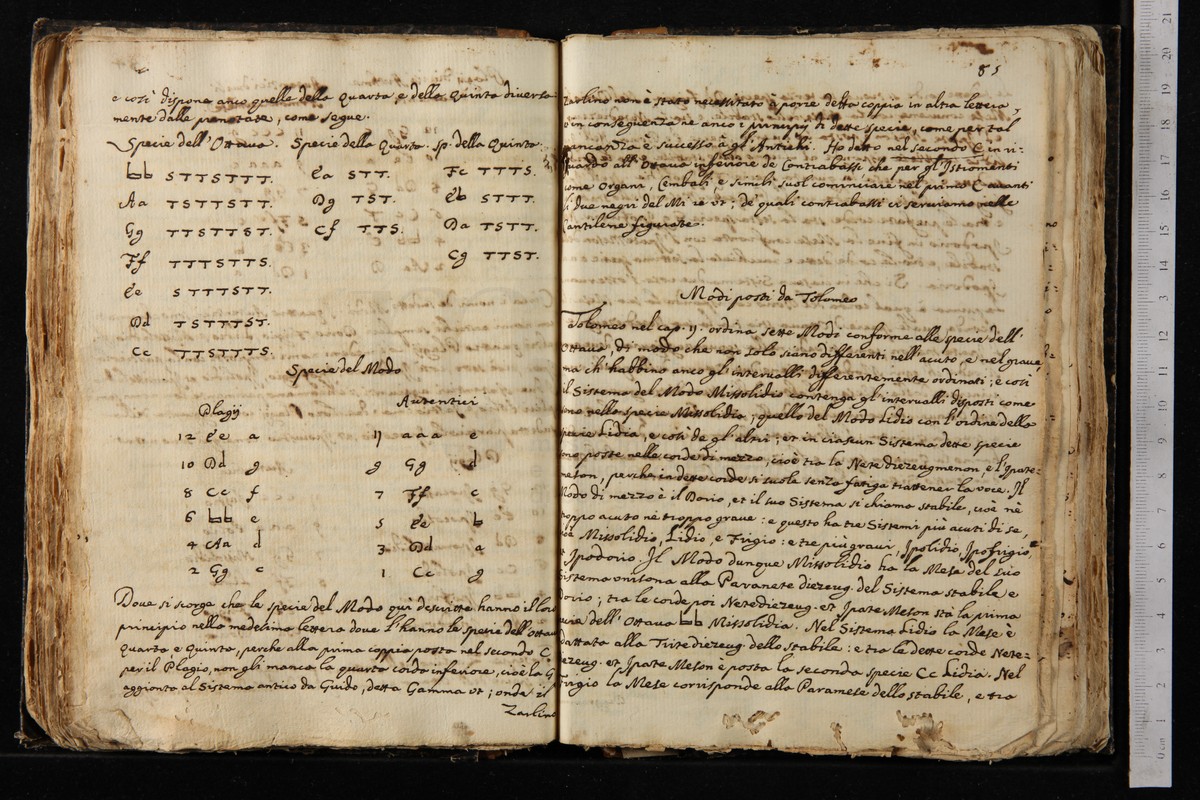 e così dispone anco quelle della quarta e della quinta diversa
mente dalle prenotate, come segue.
Specie dell'Ottava. Specie della Quarta. Sp. della Quinta.
bb STTSTTT. Ea STT. Fc TTTS.
Aa TSTTSTT. Dg TST. Eb STTT.
Gg TTSTTST. Cf TTS. Da TSTT.
Ff TTTSTTS. Cg TTST.
Ee STTTSTT.
Dd TSTTTST.
Cc TTSTTTS.
Specie del Modo
Plagij Autentici
12 Ee a 11 aaa e
10 Dd g 9 Gg d
8 Cc f 7 Ff c
6 bb e 5 Ee b
4 Aa d 3 Dd a
2 Gg c 1 Cc g
Dove si scorge che le specie del Modo quì descritte hanno il loro
principio nella medesima lettera dove l'hanno le specie dell'ottava
quarta e quinta, perche alla prima coppia posta nel secondo C
per il Plagio, non gli manca la quarta corda inferiore, cioè la G
aggionta al Sistema antico da Guido, detta Gamma ut; onde il
Zarlino
85
Zarlino non è stato necessitato à porre detta coppia in altra lettera,
o in conseguenza ne anco i principij di dette specie, come per tal
mancanza è successo à gl'Antichi. Ho detto nel secondo C in ri-
guardo all'Ottava inferiore de Contrabassi che per gl'Istromenti
come Organi, Cembali e simili suol cominciare nel primo C avanti
li due negri del Mi re ut; de quali contrabassi ci serviamo nelle
Cantilene figurate.
Modi posti da Tolomeo
Tolomeo nel cap. 11. ordina sette Modi conforme alle specie dell'
Ottava, di modo che non solo siano differenti nell'acuto, e nel grave,
ma ch'habbino anco gl'intervalli differentemente ordinati; e così
il Sistema del Modo Missolidio contenga gl'intervalli disposti come
sono nella specie Missolidia; quello del Modo Lidio con l'ordine della
specie Lidia, e così de gl'altri; et in ciascun Sistema dette specie
sono poste nelle corde di mezzo, cioè tra la Nete diezeugmenon, e l'Ipate-
meson, perche in dette corde si suole senza fatiga trattener la voce. Il
Modo di mezzo è il Dorio, et il suo Sistema si chiama stabile, cioè nè
troppo acuto nè troppo grave: e questo ha tre Sistemi più acuti di se,
cioè Missolidio, Lidio, e Frigio: e tre più gravi, Ipolidio, Ipofrigio,
et Ipodorio. Il Modo dunque Missolidio ha la Mese del suo
Sistema unisona alla Paranete diezeug. del Sistema stabile e
Dorio; tra le corde poi Nete diezeug. et Ipate Meson stà la prima
specie dell'Ottava bb Missolidia. Nel Sistema Lidio la Mese è
adattata alla Trite diezeug. dello stabile: e tra le dette corde Nete-
diezeug. et Ipate Meson è posta la seconda specie Cc Lidia. Nel
Frigio la Mese corrisponde alla Paramese dello stabile, e tra